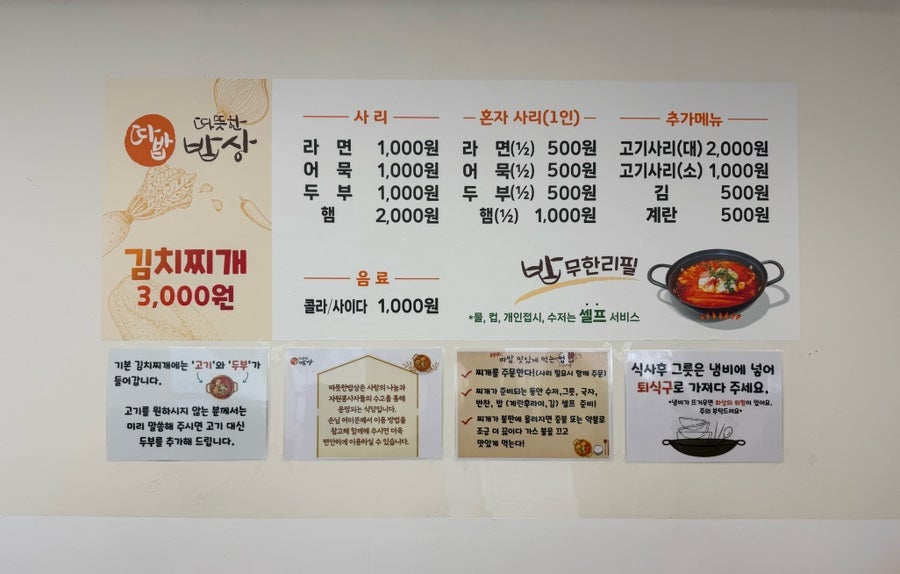 따밥
따뜻한
밥상
김치찌개
3,000원
사 리
라 면 1,000원
어 묵 1,000원
두 부 1,000원
햄 2,000원
음 료
콜라/사이다 1,000원
혼자 사리(1인)
라 면(½) 500원
어 묵(½) 500원
두 부(½) 500원
햄(½) 1,000원
추가메뉴
고기사리(대) 2,000원
고기사리(소) 1,000원
김 500원
계란 500원
밥 무한리필
*물, 컵, 개인접시, 수저는 셀프 서비스
기본 김치찌개에는 '고기'와 '두부'가
들어갑니다.
고기를 원하시지 않는 분께서는
미리 말씀해 주시면 고기 대신
두부를 추가해 드립니다.
따뜻한밥상은 사랑의 나눔과
자원봉사자들의 수고를 통해
운영되는 식당입니다.
손님 여러분께서 이용 방법을
참고해 함께해 주시면 더욱
편안하게 이용하실 수 있습니다.
따밥 맛있게 먹는 법
찌개를 주문한다!(사리 필요시 함께 주문)
찌개가 준비되는 동안 수저, 그릇, 국자,
반찬, 밥 (계란후라이, 김) 셀프 준비!
찌개가 불판에 올려지면 중불 또는 약불로
조금 더 끓이다 가스 불을 끄고
맛있게 먹는다!
식사후 그릇은 냄비에 넣어
퇴식구로 가져다 주세요.
*냄비가 뜨거우면 화상의 위험이 있어요.
주의 부탁드려요*